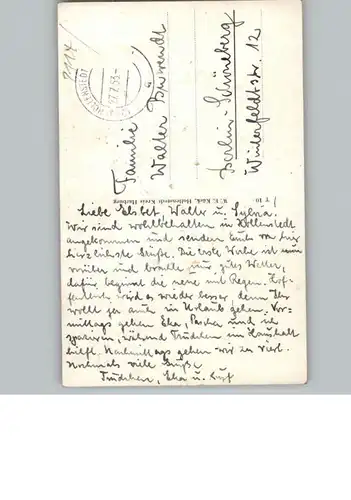 2114
HOLLENSTEDT
27.7.55
Familie
Walter
Berlin-Schöneberg
Winterfeldtstr. 12
W. T. Käck, Hollenstedt Kreis Harburg
T 10
Liebe Elsbet, Walter u. Sylvia.
Wir sind wohlbehalten in Hollenstedt
angekommen und senden Euch von hier
herzlichste Grüße. Die erste Woche ist nun
vorüber und brachte uns gutes Wetter,
dafür beginnt die neue mit Regen. Hof-
fentlich wird es wieder besser, denn Ihr
wollt ja auch in Urlaub gehen. Vor-
mittags gehen Eka, und ich
spazieren, während Trudchen im Haushalt
hilft. Nachmittags gehen wir zu viert.
Nochmals viele Grüße
Trudchen, Eka u.